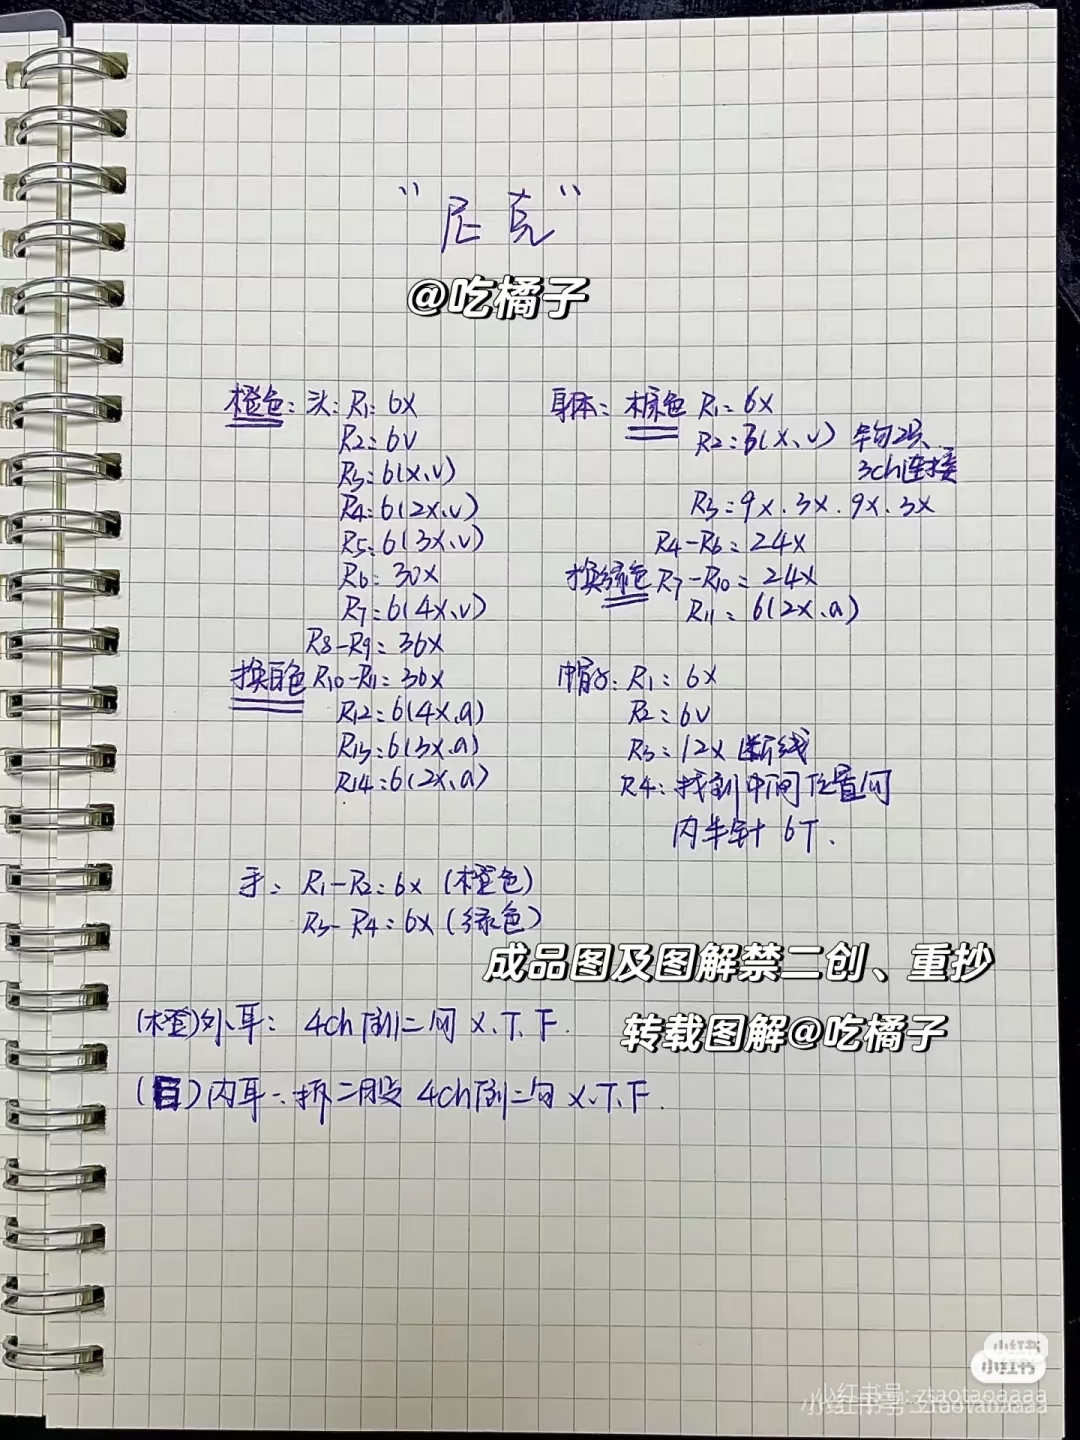 “尼克”
@吃橘子
橙色：头：R1：6X
R2：6V
R3：6(X、V)
R4：6(2X、V)
R5：6(3X、V)
R6：30X
R7：6(4X、V)
R8-R9：36X
换白色 R10-R11：36X
R12：6(4X、A)
R13：6(3X、A)
R14：6(2X、A)
身体：棕色 R1：6X
R2：3(X、V) 钩2只、
3ch连接
R3：9X.3X.9X.3X
R4-R6：24X
换绿色 R7-R10：24X
R11：6(2X、A)
帽子：R1：6X
R2：6V
R3：12X 断线
R4：找到中间位置向
内半针 6T.
手：R1-R2：6X (橙色)
R3-R4：6X (绿色)
成品图及图解禁二创、重抄
(橙)外耳：4ch倒二勾 X.T.F.
转载图解@吃橘子
(白)内耳：拆二股 4ch倒二勾 X.T.F.
小红书
小红书
小红书号:ztaotaoaaaa
小红书号:ztaotaoaaaa